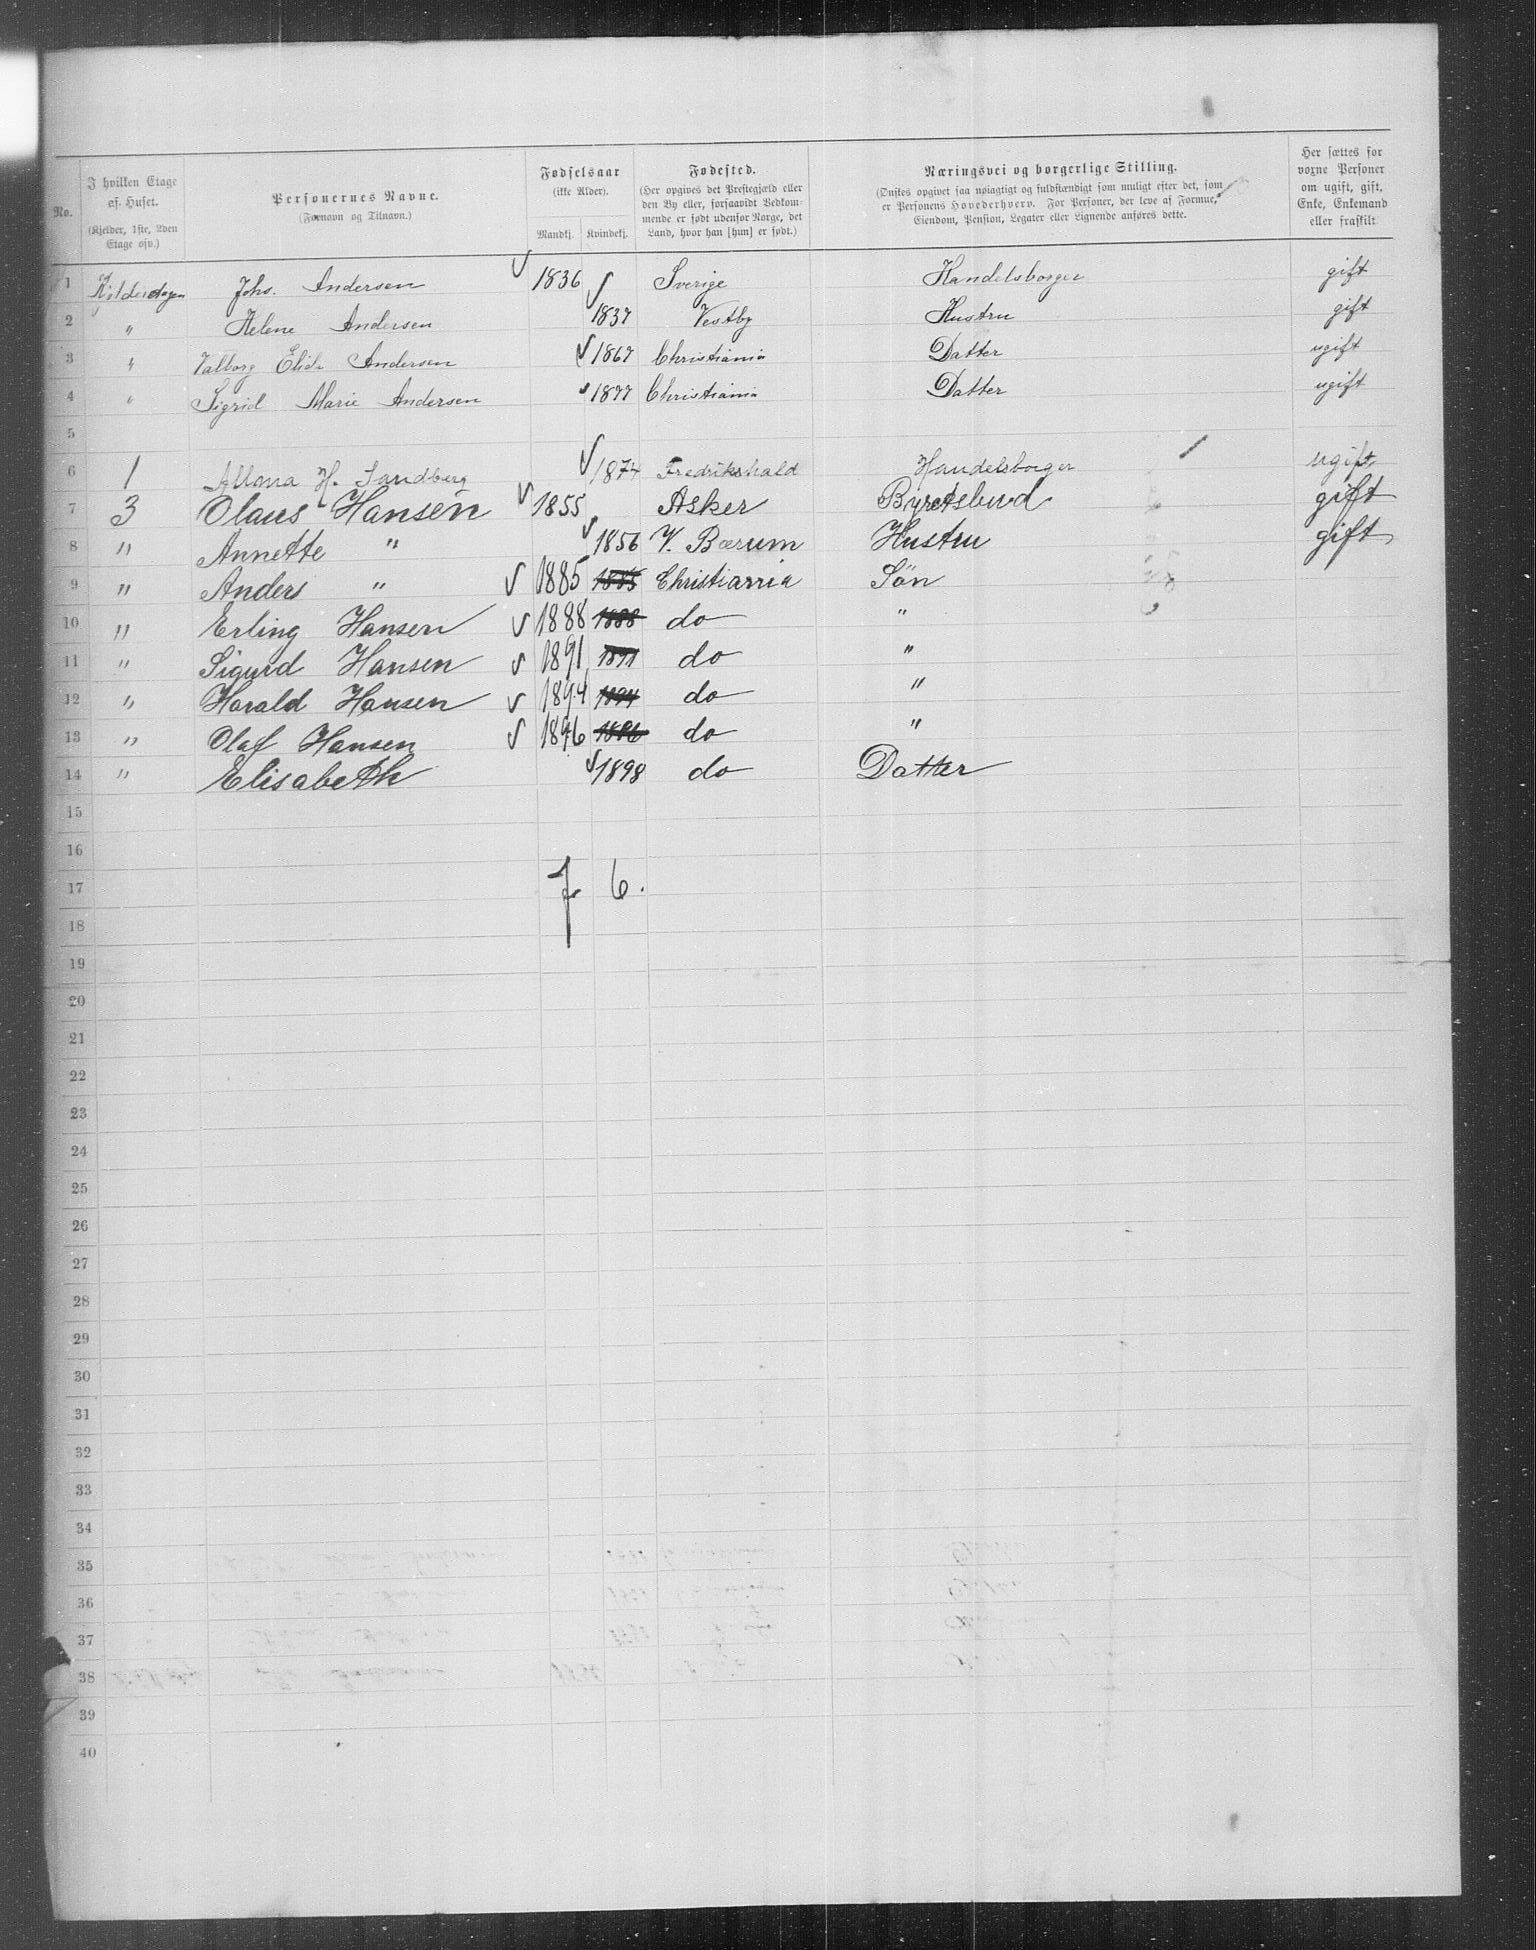 No. | I hvilken Etage af Huset. (Kjelder, 1ste, 2den Etage osv.) | Personernes Navne. (Fornavn og Tilnavn.) | Fødselsaar (ikke Alder). Mandkj. | Kvindekj. | Fødested. (Her opgives det Præstegjæld eller den By eller, forsaavidt Vedkommende er født udenfor Norge, det Land, hvor han [hun] er født.) | Næringsvei og borgerlige Stilling. (Ønskes opgivet saa nøiagtigt og fuldstændigt som muligt efter det, som er Personens Hovederhverv. For Personer, der leve af Formue, Eiendom, Pension, Legater eller Lignende anføres dette.) | Her sættes for voxne Personer om ugift, gift, Enke, Enkemand eller fraskilt
1 Kjelderetagen Johs. Andersen 1836 Sverige Handelsborger gift
2 " Helene Andersen 1837 Vestby Hustru gift
3 " Valborg Elida Andersen 1867 Christiania Datter ugift
4 " Sigrid Marie Andersen 1877 Christiania Datter ugift
5
6 1 Alma H. Sandberg 1874 Fredrikshald Handelsborger ugift
7 3 Olaus Hansen 1855 Asker Byretsbud gift
8 " Annette " 1856 V. Bærum Hustru gift
9 " Anders " 1885 1885 Christiania Søn
10 " Erling Hansen 1888 1888 do "
11 " Sigurd Hansen 1891 1891 do "
12 " Harald Hansen 1894 1894 do "
13 " Olaf Hansen 1896 1896 do "
14 " Elisabeth 1898 do Datter
15
16
17 7 6.
18
19
20
21
22
23
24
25
26
27
28
29
30
31
32
33
34
35
36
37
38
39
40